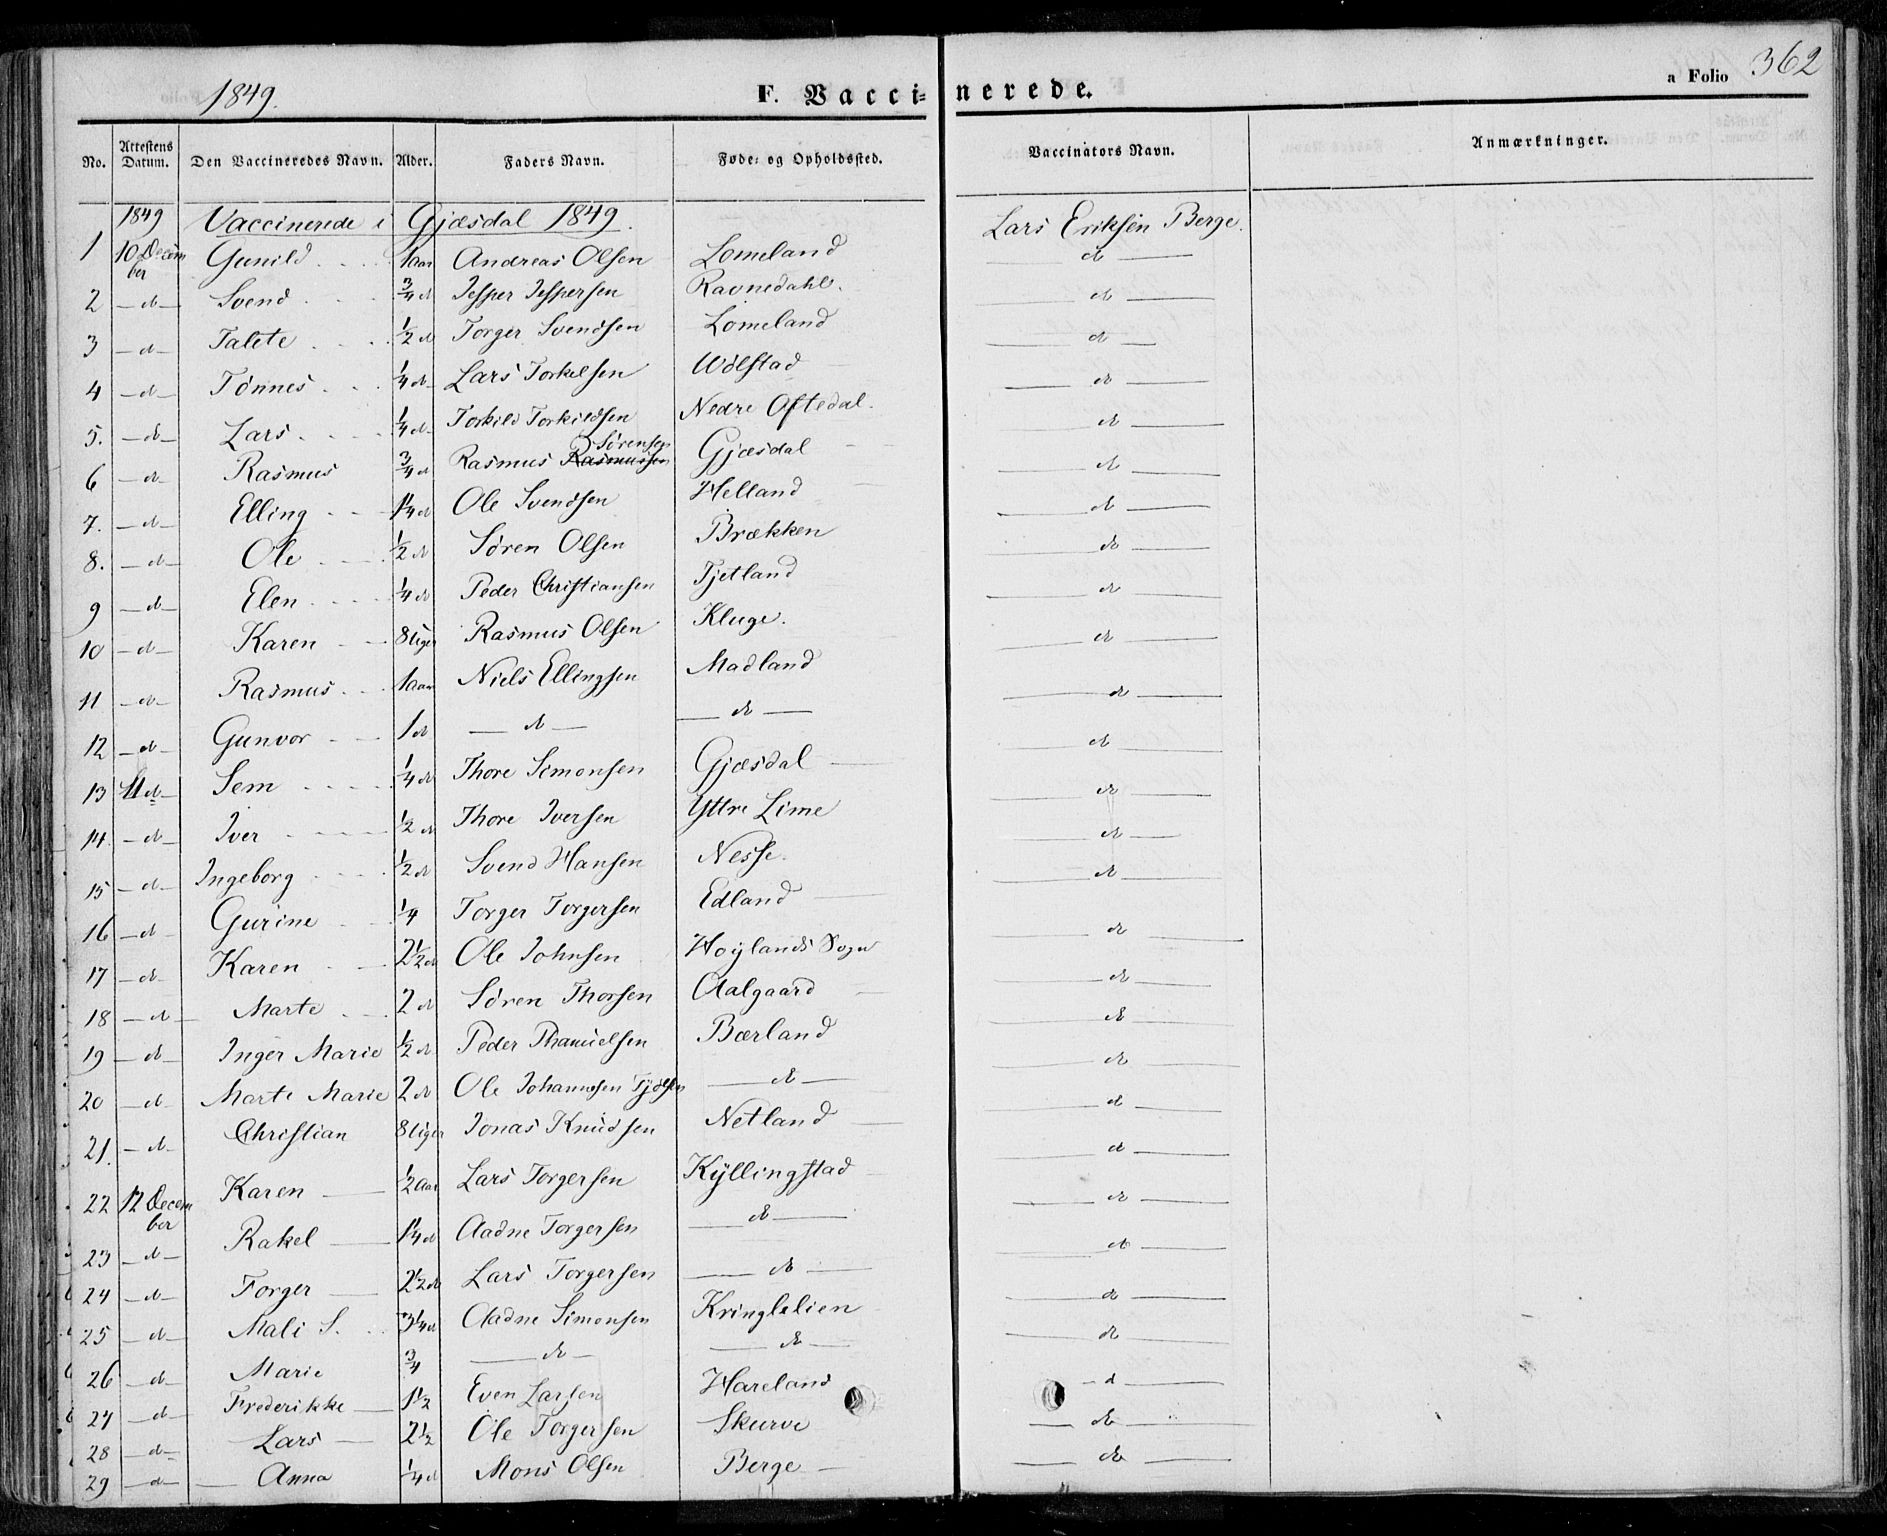 1849. F. Vacci= nerede. a Folio 362
No. Attestens Datum. Den Vaccineredes Navn. Alder. Faders Navn. Føde= og Opholdssted. Vaccinators Navn. Anmærkninger.
1849 Vaccinerede i Gjæsdal 1849. Lars Eriksen Berge.
1 10 December Gunild 1 aar Andreas Olsen Lomeland d
2 d Svend 3/4 d Jesper Jespersen Ravnedahl. d
3 d Talete 1/2 d Torger Svendsen Lomeland d
4 d Tønnes 1/4 d Lars Torkelsen Wølstad d
5. d Lars 1/4 d Torkild Torkildsen Nedre Oftedal. d
6 d Rasmus 3/4 d Rasmus Rasmussen Sørensen Gjæsdal d
7. d Elling 1 1/4 d Ole Svendsen Helland d
8. d Ole 1/2 d Søren Olsen Brækken d
9 d Elen 1/4 d Peder Christiansen Tjetland d
10 d Karen 8 Uger Rasmus Olsen Kluge. d
11 d Rasmus 1 aar Niels Ellingsen Madland d
12 d Gunvor 1 d d d d
13 11 d Sem 1/4 d Thore Simonsen Gjæsdal d
14. d Iver 1/2 d Thore Iversen Yttre Lime d
15 d Ingeborg 1/2 d Svend Hansen Nesse. d
16 d Gurine 1/4 Torger Torgersen Edland d
17 d Karen 2 1/2 d Ole Johnsen Høylands Sogn d
18 d Marte 2 d Søren Thorsen Aalgaard d
19 d Inger Marie 1/2 d Peder Bærland d
20 d Marte Marie 2 d Ole Johannesen d d
21. d Christian 8 Uger Jonas Knudsen Netland d
22 12 December Karen 1/2 Aar Lars Torgersen Kyllingstad d
23 d Rakel 1 1/4 d Aadne Torgersen d d
24 d Torger 2 1/2 d Lars Torgersen d d
25 d Mali S. 3 1/4 d Aadne Simonsen Kringlelien d
26 d Marie 3/4 d d d
27 d Frederikke 1 1/2 Even Larsen Hareland d
28 d Lars 2 1/2 Ole Torgersen Skurve d
29 d Anna 1/4 d Mons Olsen Berge d